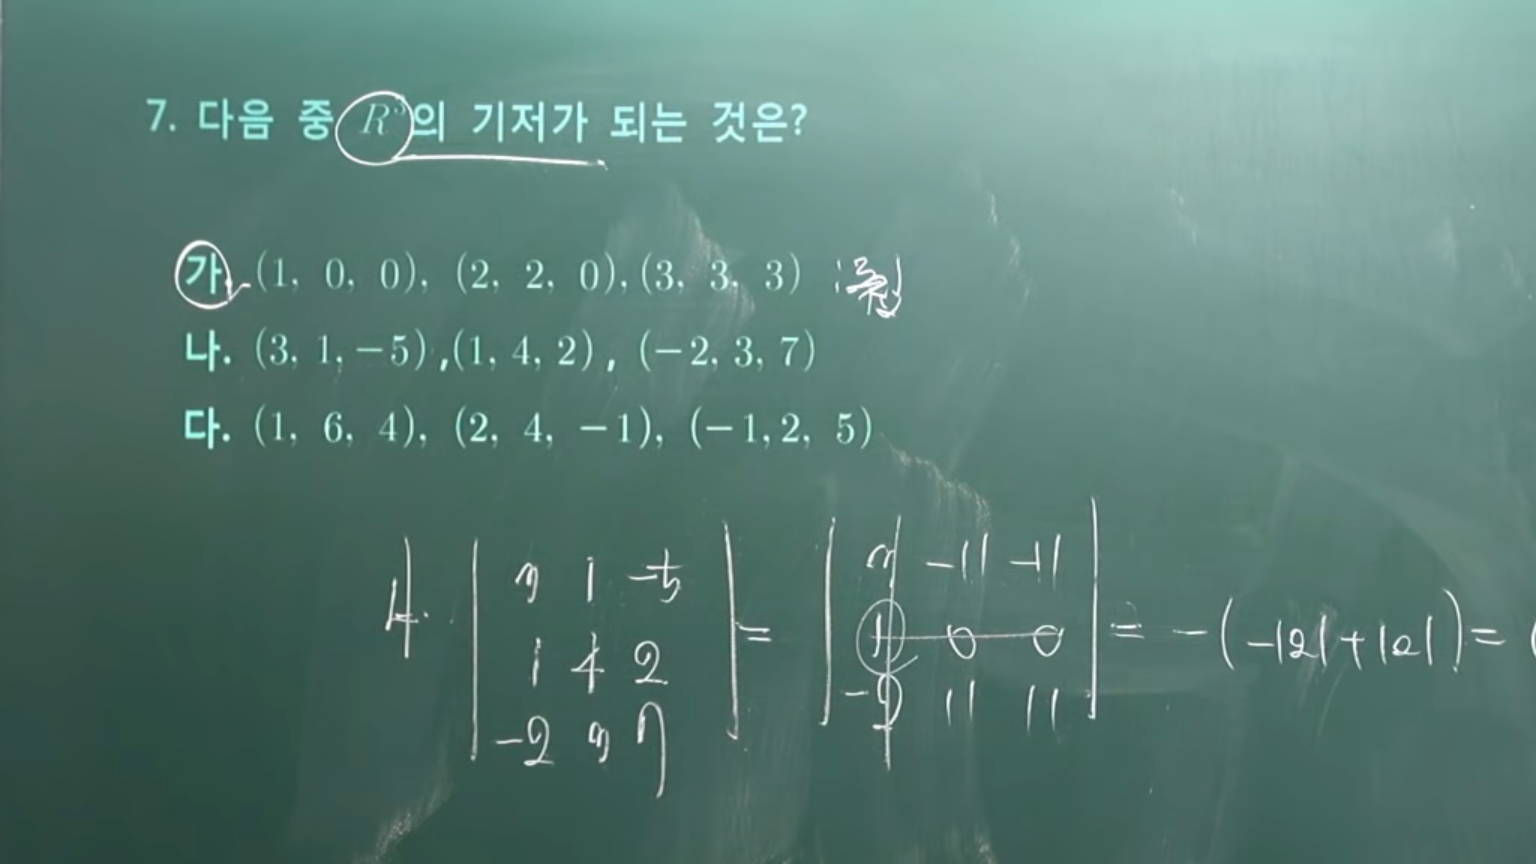 7. 다음 중 R³의 기저가 되는 것은?
가. (1, 0, 0), (2, 2, 0), (3, 3, 3) :
나. (3, 1, -5), (1, 4, 2), (-2, 3, 7)
다. (1, 6, 4), (2, 4, -1), (-1, 2, 5)
나. | 3 1 -5 | = | 3 -11 -11 | = -(-121+121) =
1 4 2 1 0 0
-2 3 7 -2 11 11